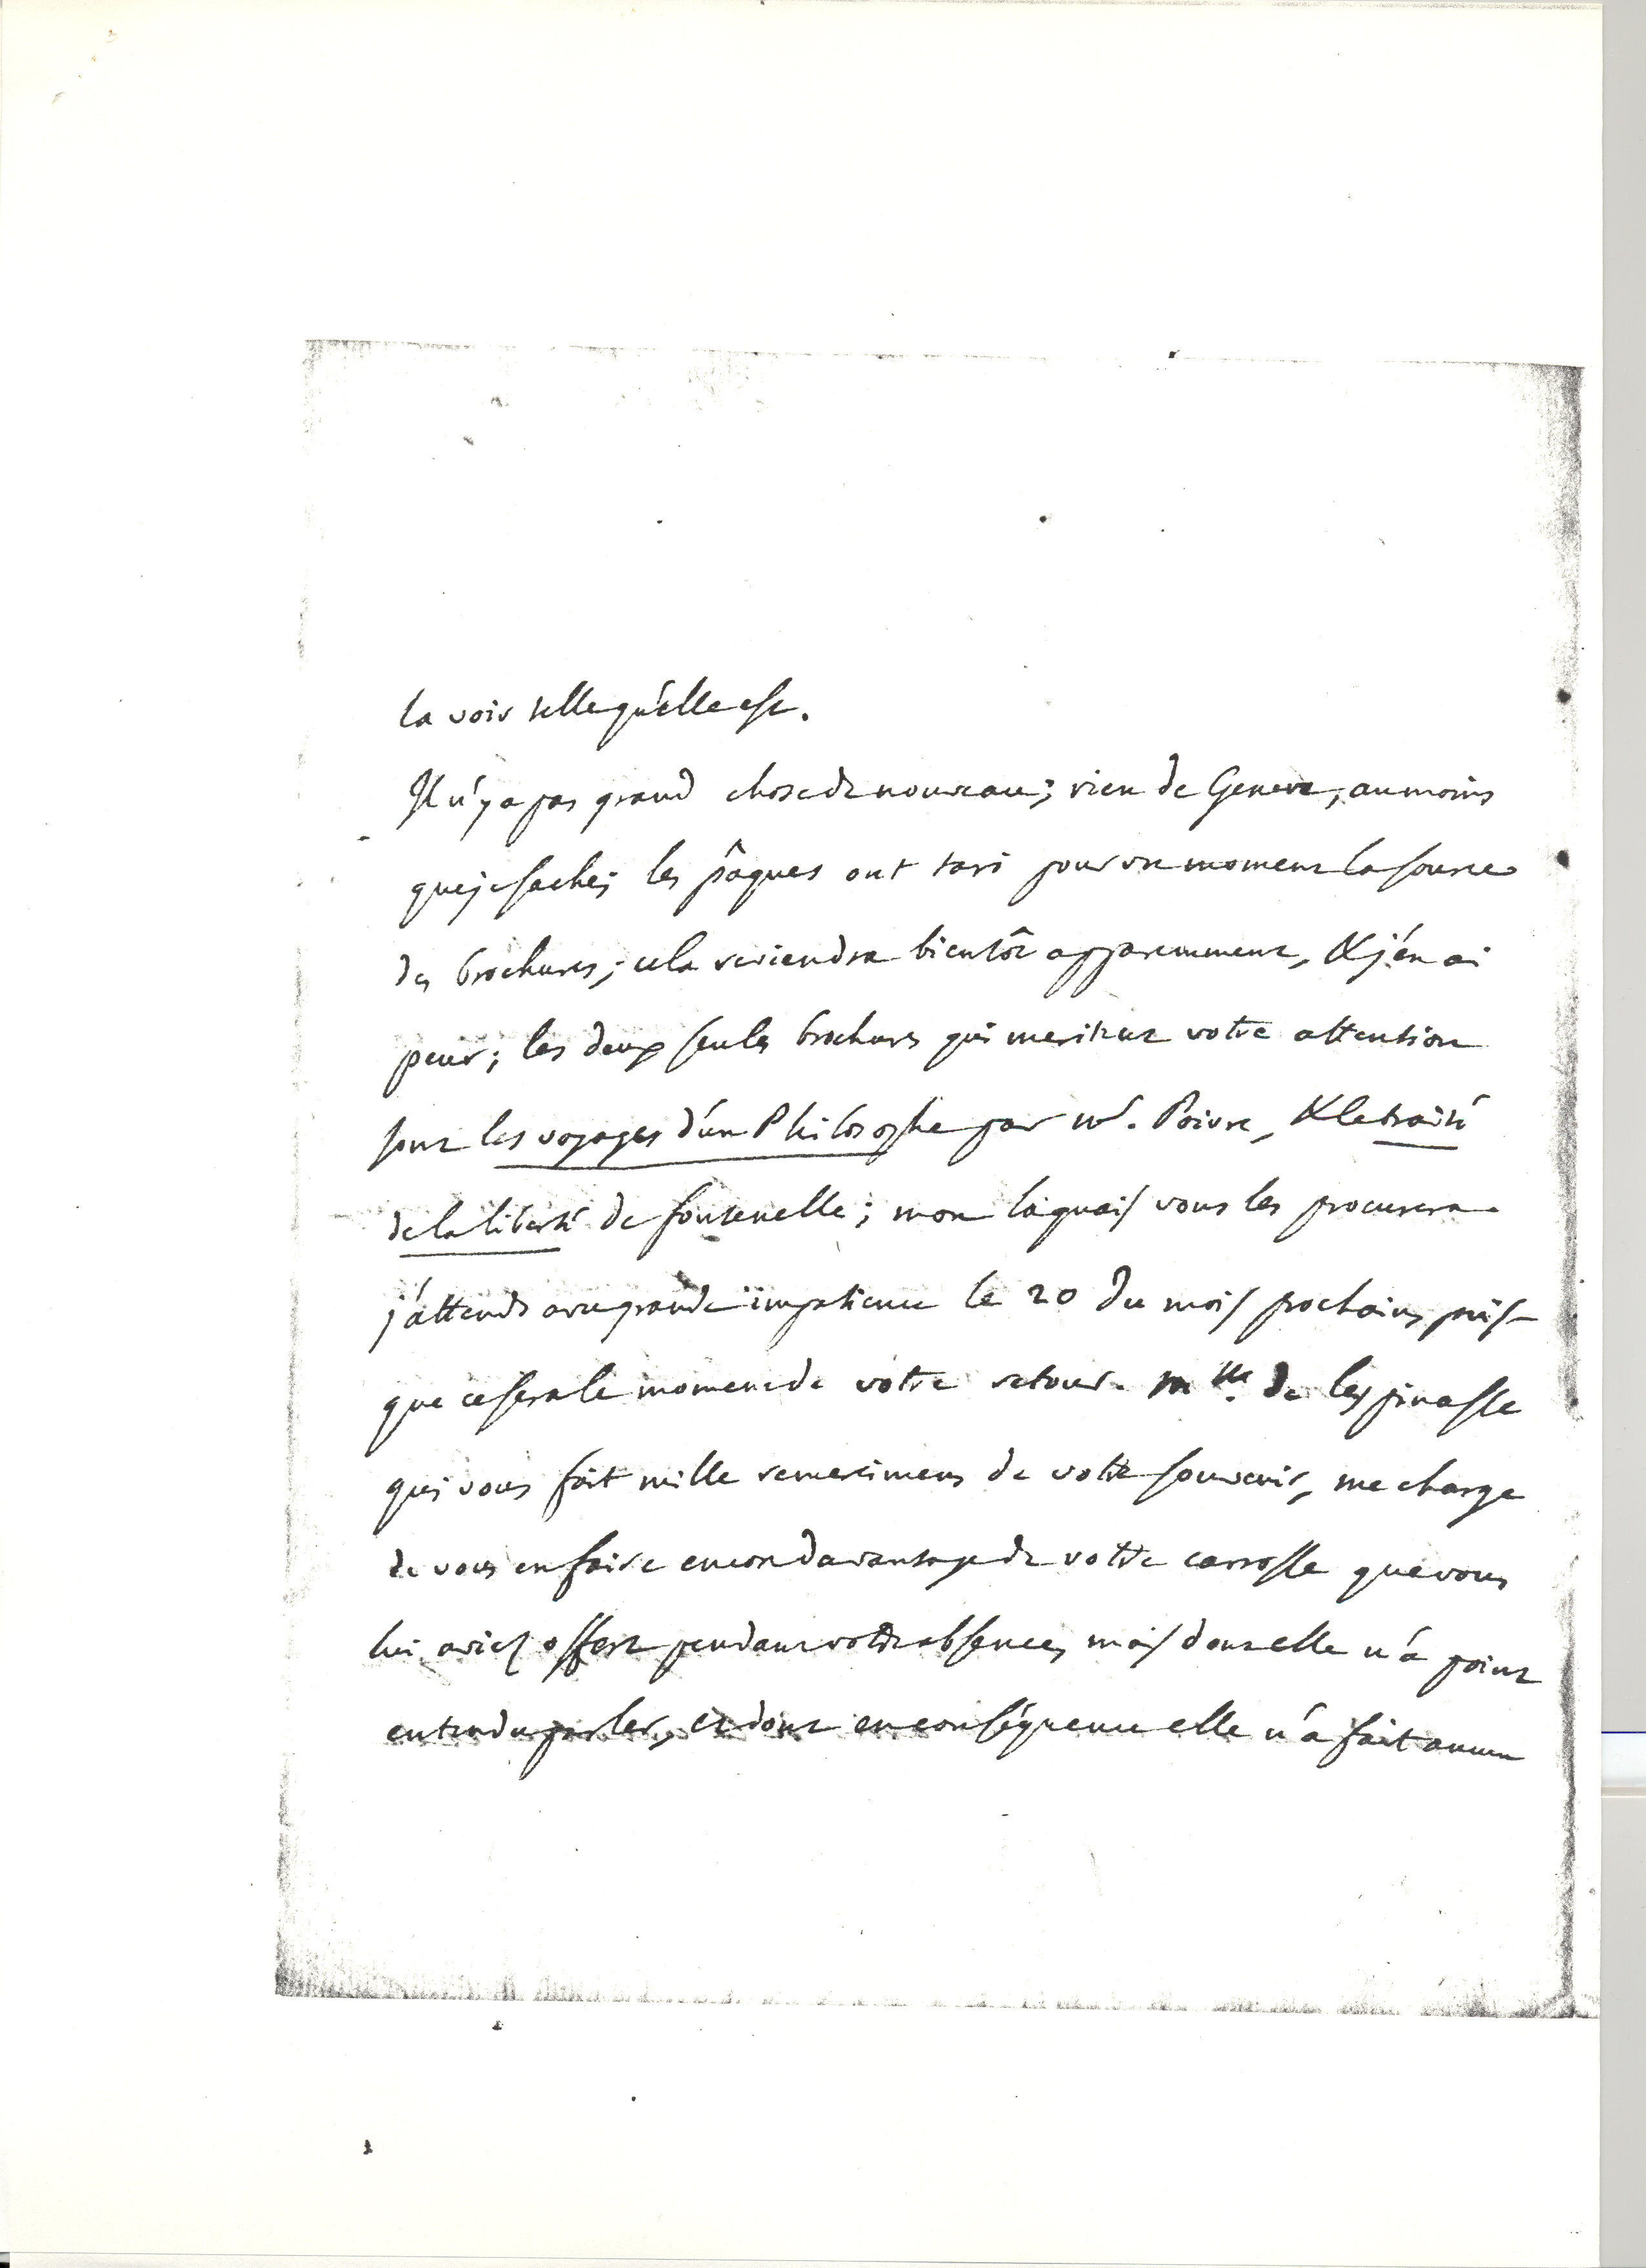 la voir telle qu'elle est.
Il n'y a pas grand chose de nouveau; rien de Geneve, au moins
que je sache; les pâques ont tari pour un moment la source
des brochures; cela reviendra bientôt apparemment, & j'en ai
peur; les deux seules brochures qui meritent votre attention
sont les voyages d'un Philosophe par mr. Poivre, & le traité
de la liberté de fontenelle; mon laquais vous les procurera.
j'attends avec grande impatience le 20 du mois prochain, puis-
que ce sera le moment de votre retour. mlle. de lespinasse
qui vous fait mille remercimens de votre souvenir, me charge
de vous en faire encore davantage de votre carrosse que vous
lui aviez offert pendant votre absence, mais dont elle n'a point
entendu parler, et dont en conséquence elle n'a fait aucun